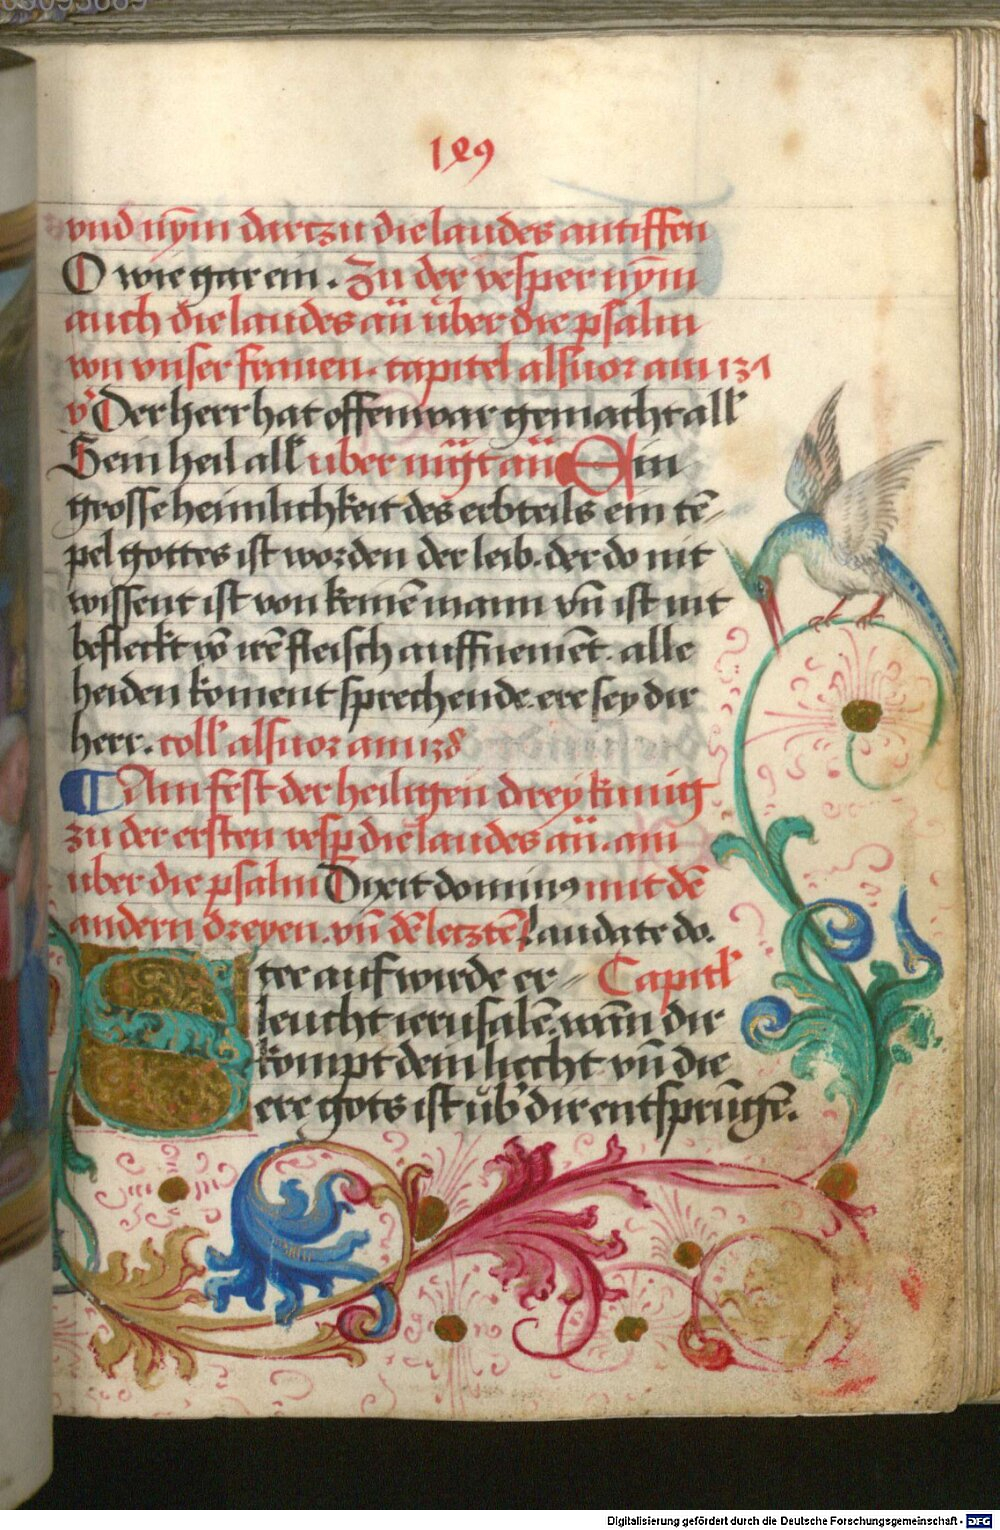 189
vnd nym̄ dartzu die laudes antiffen
O wie gar ein . Zu der vesper nym̄
auch die laudes an̄ über die psalm
von vnser frauen . capitel als uor am 131
v̓ Der herr hat offenwar gemacht all̓
Sein heil all̓ uber mg̃t an̄ Ain
grosse heimlichkeit des erbteils ein tē-
pel gottes ist worden der leib . der do nit
wissent ist von keinē mann vn̄ ist nit
befleckt vō irē fleisch auffnemēt . alle
heiden koment sprechende . ere sey dir
herr . coll̓ als uor am 128
Am fest der heiligen drey kunig
zu der ersten vesp̄ die laudes an̄ . am
über die psalm Dixit dominus mit dē
andern dreyen . vn̄ dē letztē laudate do.
Capitl̓
Stee auf wirde er-
leucht ierusalē . wān dir
kompt dein liecht vn̄ die
ere gots ist üb̓ dir entsprūgē .
Digitalisierung gefördert durch die Deutsche Forschungsgemeinschaft - DFG